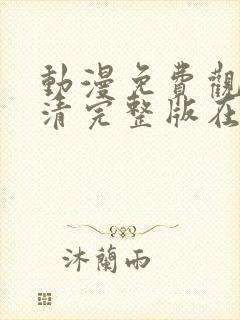 動漫免費觀
清完整版在
沐蘭雨